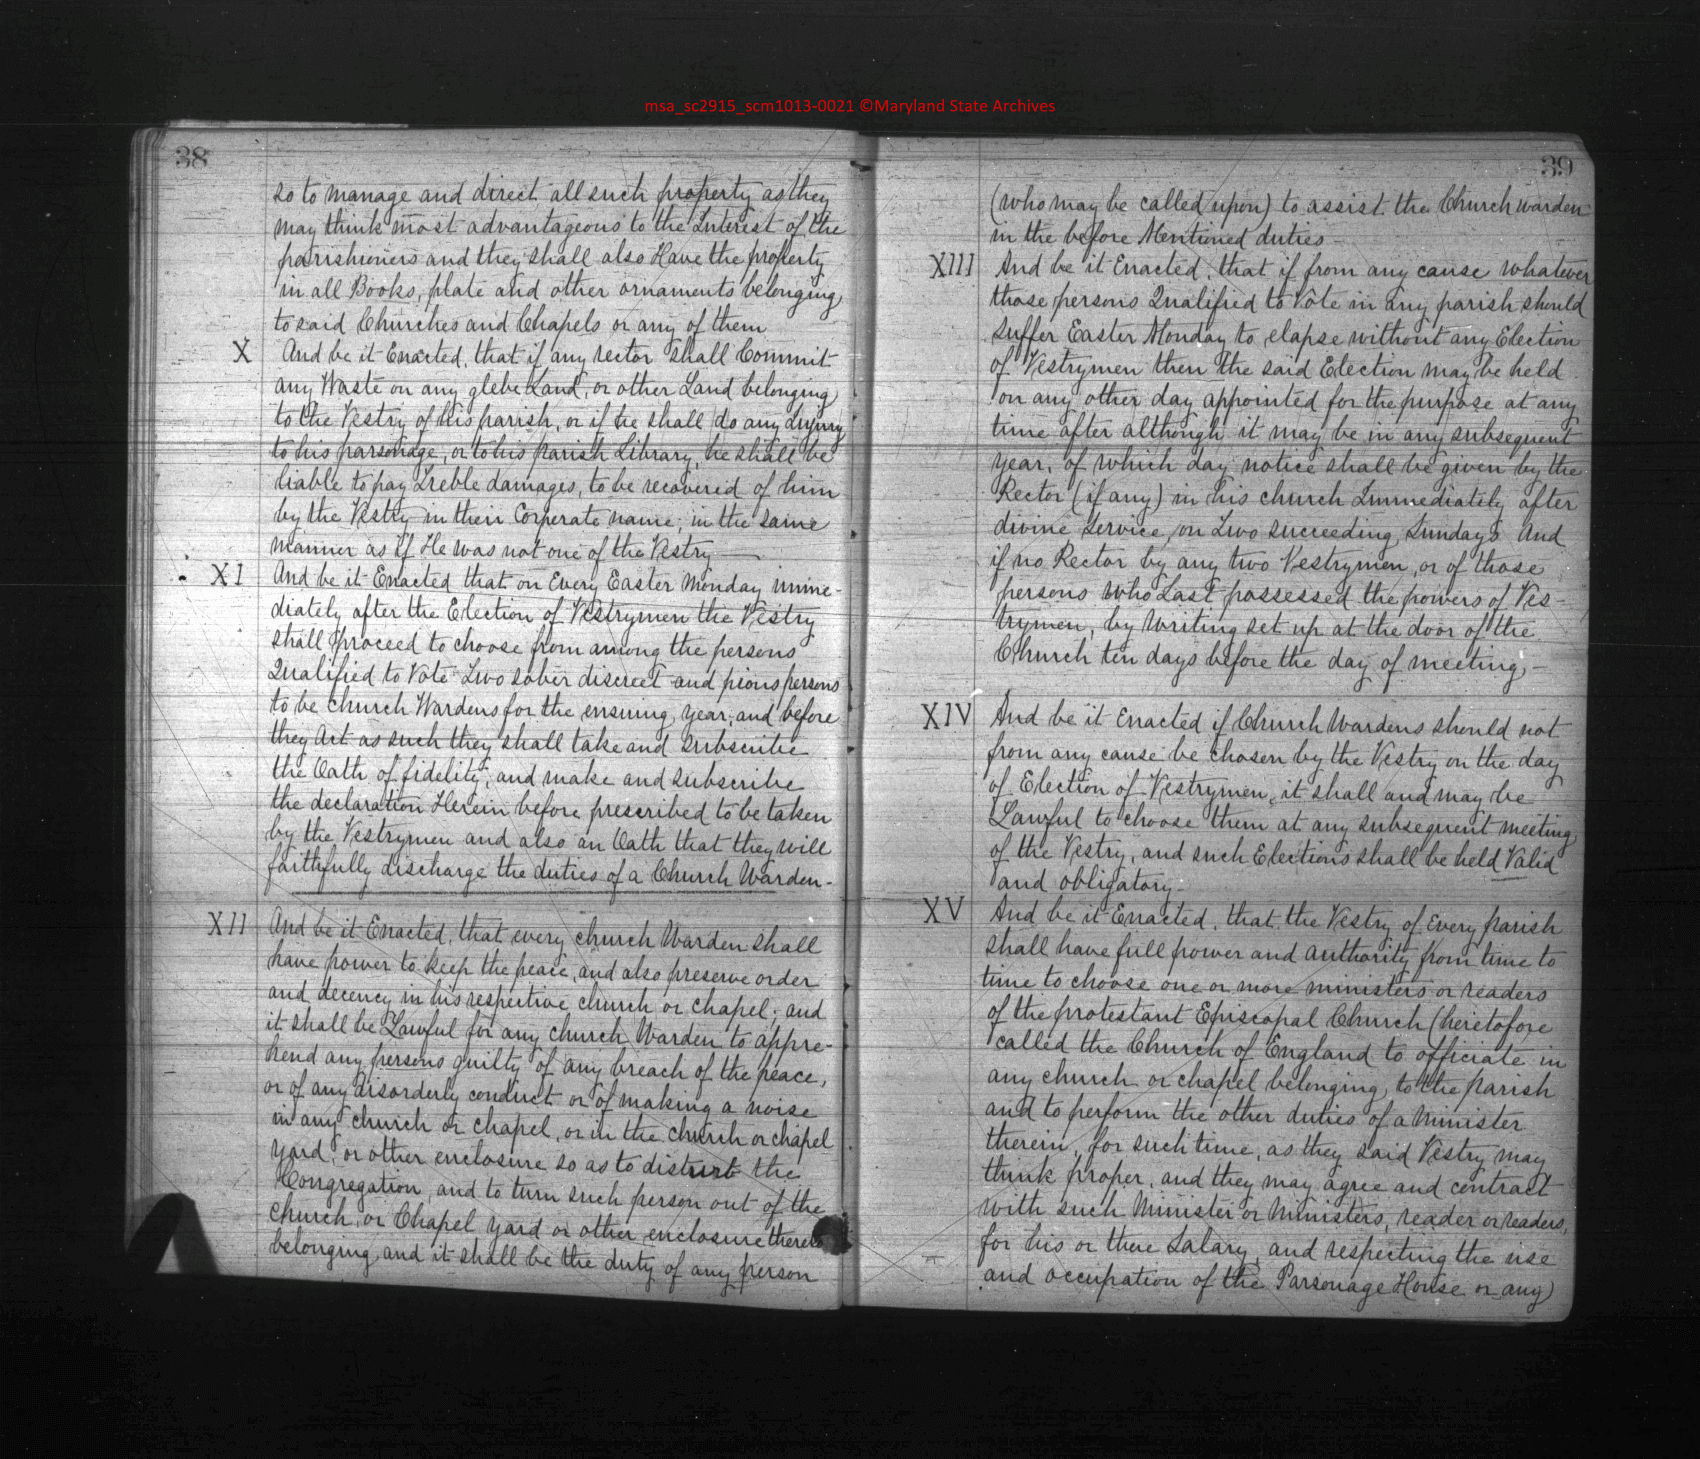 msa_sc2915_scm1013-0021 ©Maryland State Archives
38
so to manage and direct all such property as they
may think most advantageous to the Interest of the
parishioners and they shall also Have the property
in all Books, plate and other ornaments belonging
to said Churches and Chapels or any of them
X And be it Enacted, that if any rector shall Commit
any Waste on any glebe Land, or other Land belonging
to the Vestry of his parish, or if he shall do any Injury
to his parsonage, or to his parish Library, he shall be
liable to pay Treble damages, to be recovered of him
by the Vestry in their Corperate name; in the same
manner as if He was not one of the Vestry —
XI And be it Enacted that on Every Easter Monday imme-
diately after the Election of Vestrymen the Vestry
shall proceed to choose from among the persons
Qualified to Vote Two sober discreet and pious persons
to be church Wardens for the ensuing year, and before
they Act as such they shall take and Subscribe
the Oath of fidelity, and make and subscribe
the declaration Herein before prescribed to be taken
by the Vestrymen and also an Oath that they will
faithfully discharge the duties of a Church Warden-
XII And be it Enacted, that every church Warden shall
have power to keep the peace, and also preserve order
and decency in his respective church or chapel; and
it shall be Lawful for any church Warden to appre-
hend any persons guilty of any breach of the peace,
or of any disorderly conduct or of making a noise
in any church or chapel, or in the church or chapel
yard, or other enclosure so as to disturb the
Congregation, and to turn such person out of the
church, or Chapel yard or other enclosure thereto
belonging and it shall be the duty of any person
39
(who may be called upon) to assist the Church warden
in the before Mentioned duties -
XIII And be it Enacted, that if from any cause whatever
those persons Qualified to Vote in any parish should
suffer Easter Monday to elapse without any Election
of Vestrymen then the said Election may be held
on any other day appointed for the purpose at any
time after although it may be in any subsequent
year, of which day notice shall be given by the
Rector (if any) in his church Immediately after
divine Service, on Two succeeding Sundays And
if no Rector by any two Vestrymen, or of those
persons who Last possessed the powers of Ves-
trymen, by Writing set up at the door of the
Church ten days before the day of meeting, -
XIV And be it Enacted if Church Wardens should not
from any cause be chosen by the Vestry on the day
of Election of Vestrymen, it shall and may be
Lawful to choose them at any subsequent meeting
of the Vestry, and such Elections shall be held Valid
and obligatory -
XV And be it Enacted, that the Vestry of Every parish
shall have full power and authority from time to
time to choose one or more ministers or readers
of the protestant Episcopal Church (heretofore
called the Church of England to officiate in
any church or chapel belonging to the parish
and to perform the other duties of a Minister
therein, for such time, as they said Vestry may
think proper, and they may agree and contract
with such Minister or Ministers, reader or readers,
for his or there Salary, and respecting the use
and occupation of the Parsonage House or any)